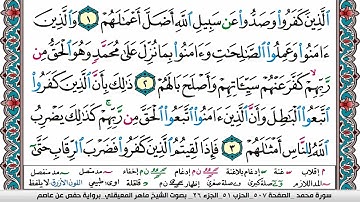 ٱلَّذِينَ كَفَرُوا۟ وَصَدُّوا۟ عَن سَبِيلِ ٱللَّهِ أَضَلَّ أَعْمَٰلَهُمْ ١ وَٱلَّذِينَ
ءَامَنُوا۟ وَعَمِلُوا۟ ٱلصَّٰلِحَٰتِ وَءَامَنُوا۟ بِمَا نُزِّلَ عَلَىٰ مُحَمَّدٍ وَهُوَ ٱلْحَقُّ مِن
رَّبِّهِمْ كَفَّرَ عَنْهُمْ سَيِّـَٔاتِهِمْ وَأَصْلَحَ بَالَهُمْ ٢ ذَٰلِكَ بِأَنَّ ٱلَّذِينَ كَفَرُوا۟
ٱتَّبَعُوا۟ ٱلْبَٰطِلَ وَأَنَّ ٱلَّذِينَ ءَامَنُوا۟ ٱتَّبَعُوا۟ ٱلْحَقَّ مِن رَّبِّهِمْ كَذَٰلِكَ يَضْرِبُ
ٱللَّهُ لِلنَّاسِ أَمْثَٰلَهُمْ ٣ فَإِذَا لَقِيتُمُ ٱلَّذِينَ كَفَرُوا۟ فَضَرْبَ ٱلرِّقَابِ حَتَّىٰٓ
سورة محمد الصفحة ٥٠٧ الجزء ٥١ الجزء ٢٦ بصوت الشيخ ماهر المعيقلي برواية حفص عن عاصم